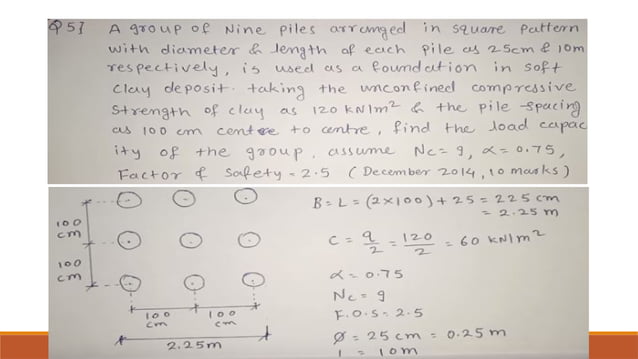 Q 5] A group of Nine piles arranged in square Pattern
with diameter & length of each pile as 25cm & 10m
respectively, is used as a foundation in soft
clay deposit. taking the unconfined compressive
strength of clay as 120 kN/m² & the pile spacing
as 100 cm centre to centre, find the load capac
ity of the group. assume Nc = 9, α = 0.75,
Factor of Safety = 2.5 (December 2014, 10 marks)
100
cm
100
cm
100
cm
100
cm
2.25m
B = L = (2×100) + 25 = 225 cm
= 2.25 m
C = q/2 = 120/2 = 60 kN/m²
α = 0.75
Nc = 9
F.O.S = 2.5
Ø = 25 cm = 0.25 m
l = 10m